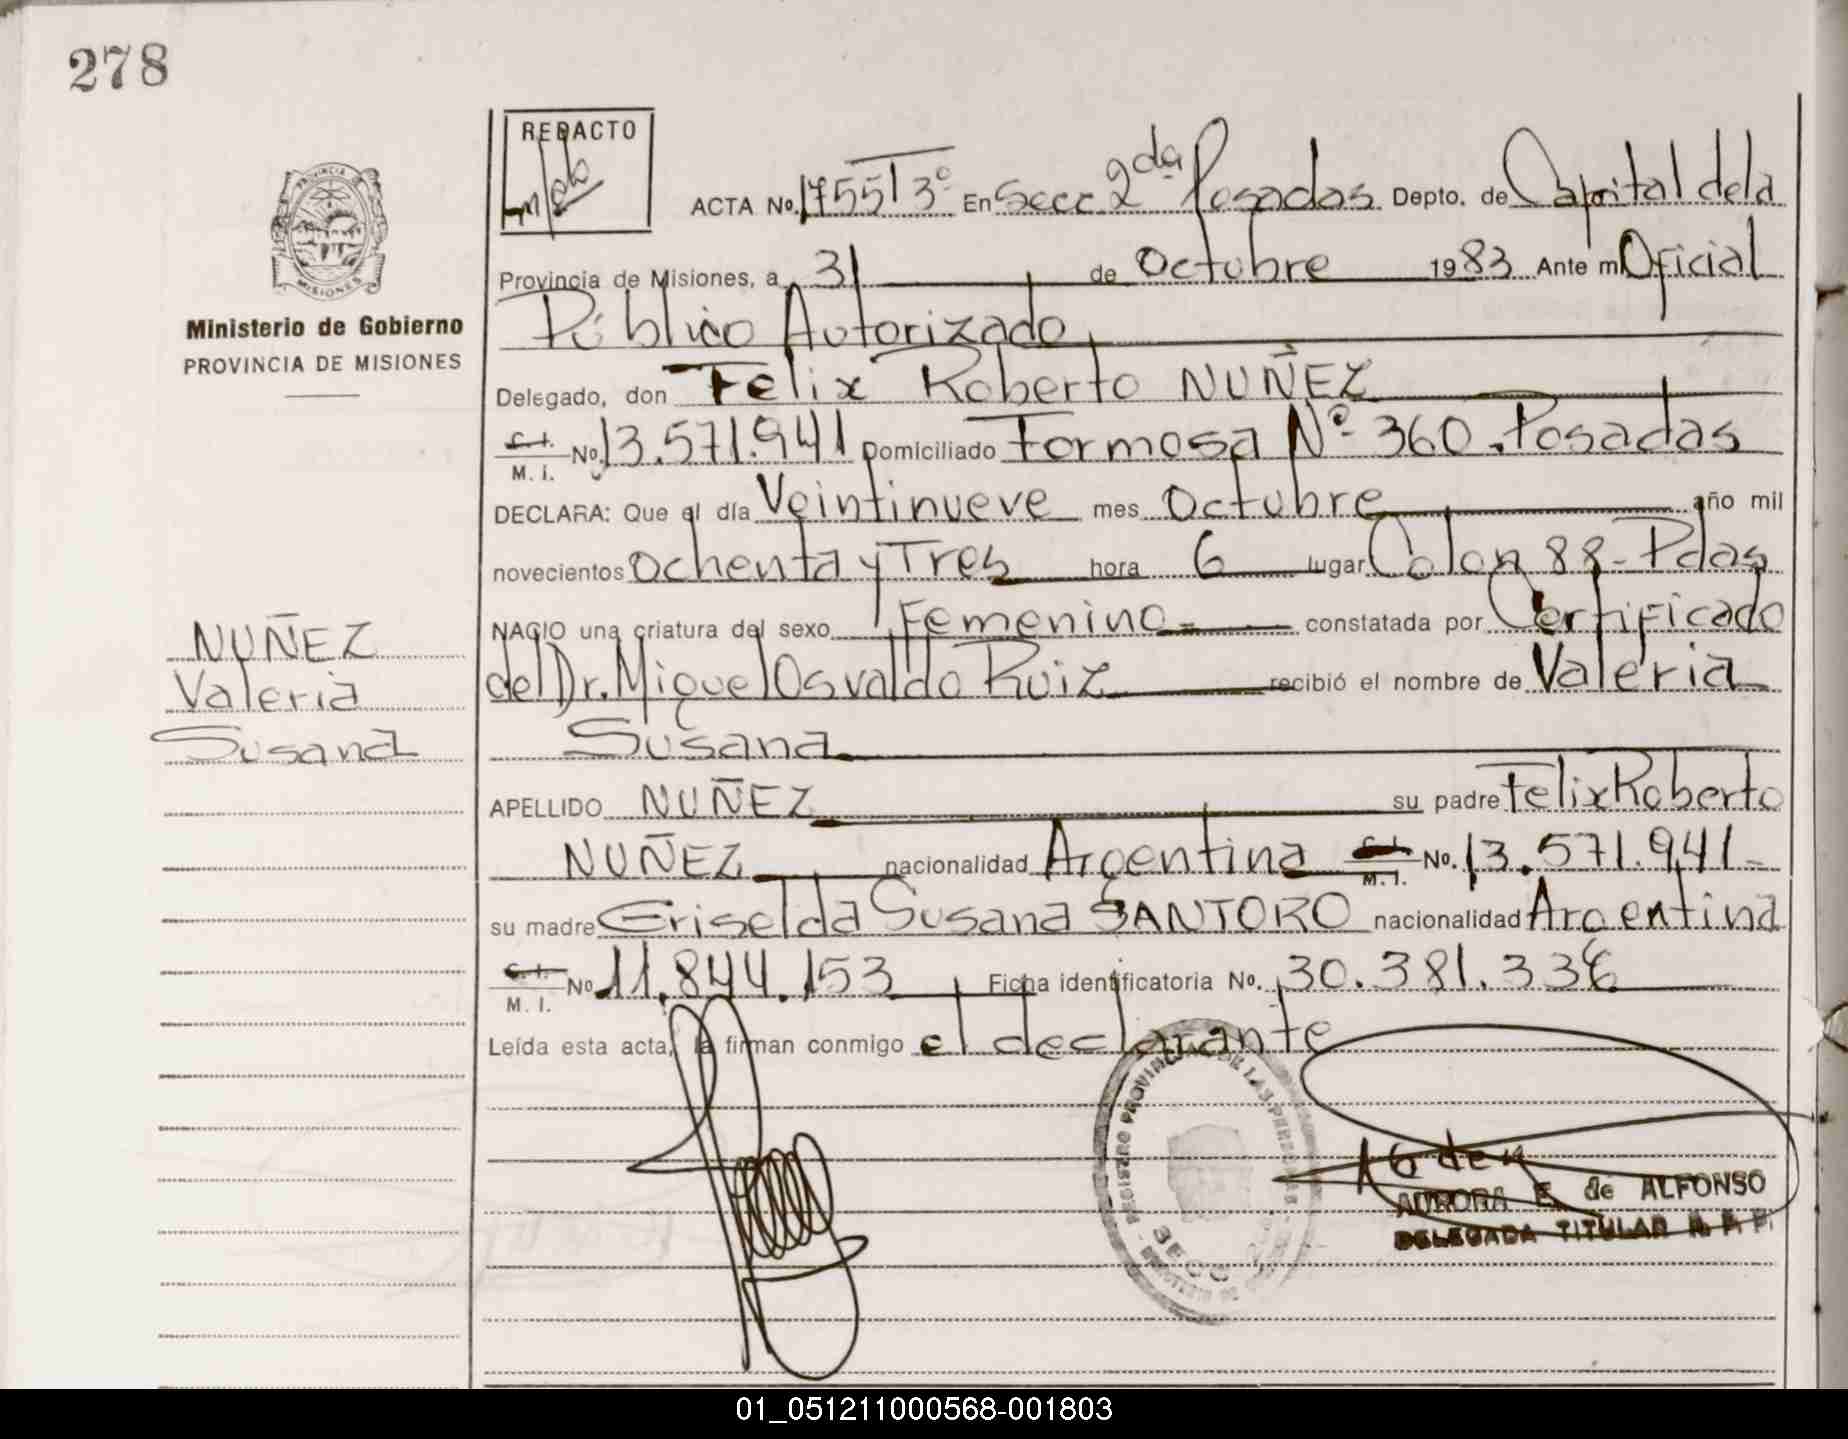 278
REDACTO
ACTA No. 1755 T 3º En Secc 2da Posadas Depto. de Capital de la
Provincia de Misiones, a 31 de Octubre 1983 Ante mi Oficial
Público Autorizado
Delegado, don Felix Roberto NUÑEZ
C. I. No. 13.571.941 Domiciliado Formosa Nº 360. Posadas
M. I.
DECLARA: Que el día Veintinueve mes Octubre año mil
novecientos Ochenta y Tres hora 6 lugar Colon 88 - Pdas
NACIO una criatura del sexo Femenino constatada por Certificado
del Dr. Miguel Osvaldo Ruiz recibió el nombre de Valeria
Susana
APELLIDO NUÑEZ su padre Felix Roberto
NUÑEZ nacionalidad Argentina C. I. No. 13.571.941
M. I.
su madre Griselda Susana SANTORO nacionalidad Argentina
C. I. No 11.844.153 Ficha identificatoria No. 30.381.336
M. I.
Leída esta acta, la firman conmigo el declarante
PROVINCIA
MISIONES
Ministerio de Gobierno
PROVINCIA DE MISIONES
NUÑEZ
Valeria
Susana
REGISTRO PROVINCIAL DE LAS PERSONAS
SECC
AURORA E. de ALFONSO
DELEGADA TITULAR R. P. P.
01_051211000568-001803